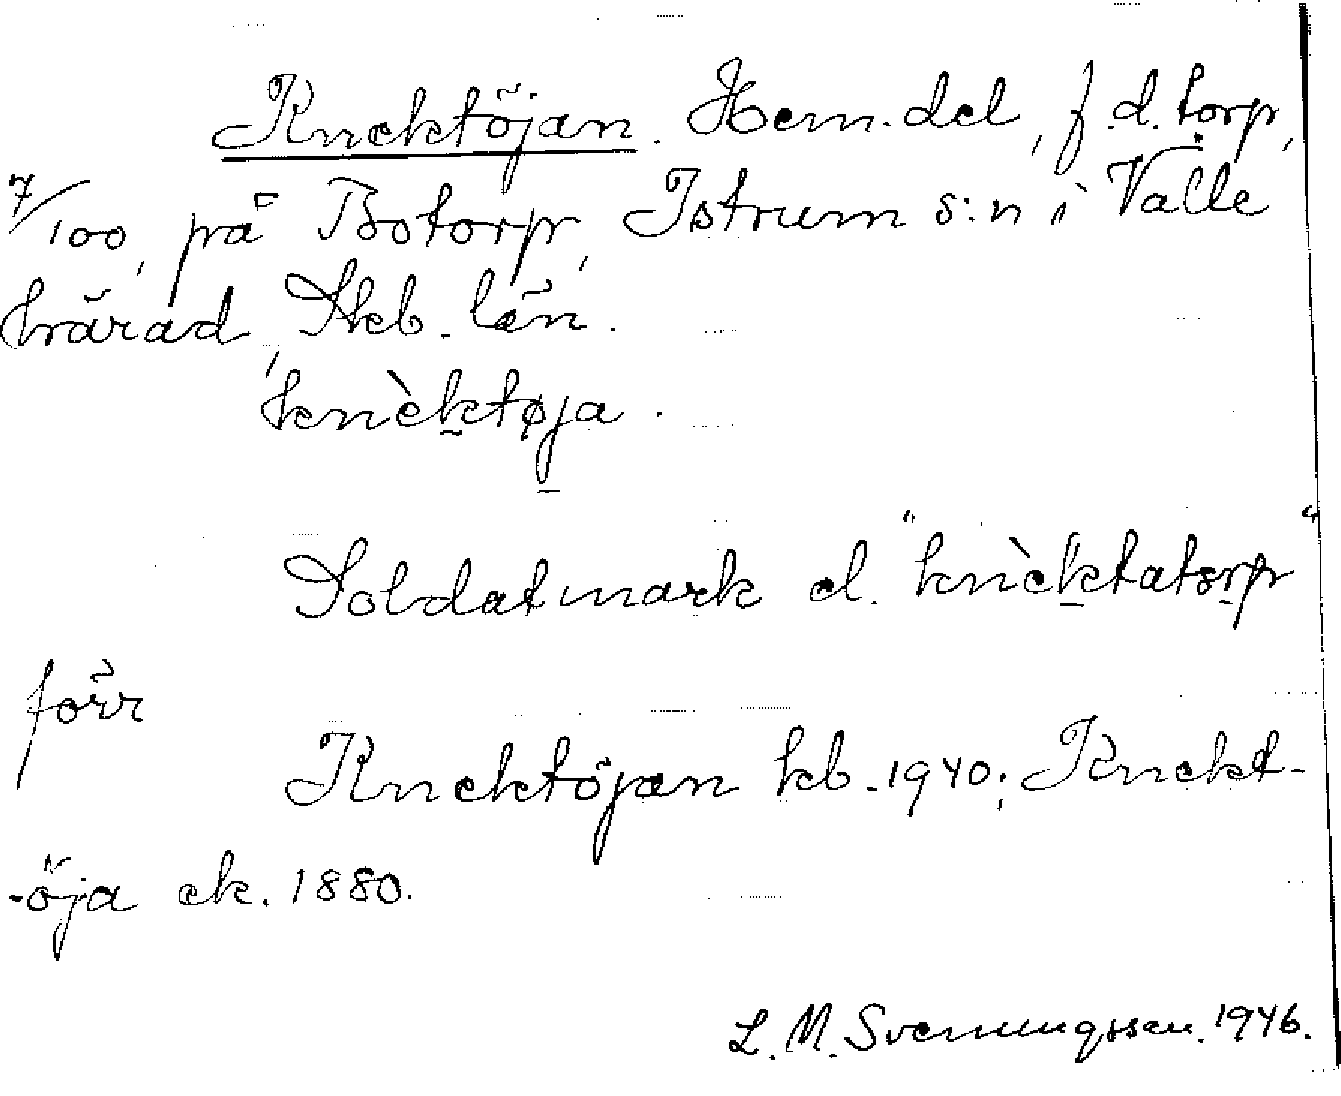 Knektöjan. Hem.del, f.d. torp,
7/100, på Botorp, Istrum s:n i Valle
härad, Skb. län.
knèktøja.
Soldatmark el. "knèktatorp"
förr
Knektöjan kb. 1940; Knekt-
-öja ek. 1880.
L. M. Svenungsson. 1946.